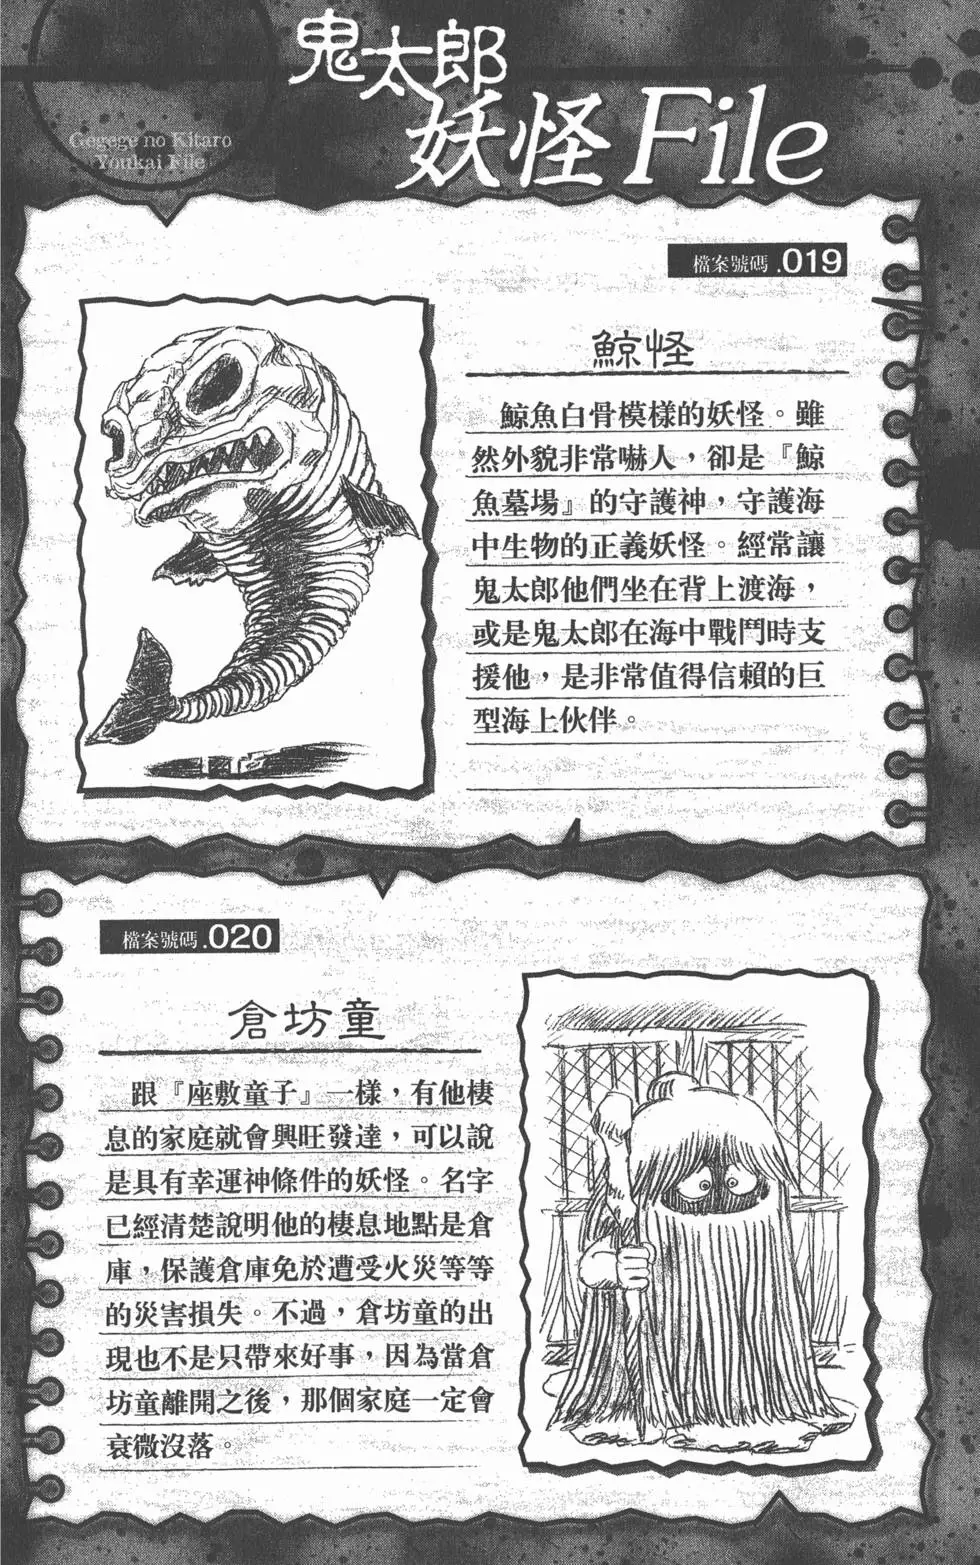 鬼太郎
妖怪File
Gegege no Kitaro
Youkai File
檔案號碼.019
鯨怪
鯨魚白骨模樣的妖怪。雖
然外貌非常嚇人，卻是『鯨
魚墓場』的守護神，守護海
中生物的正義妖怪。經常讓
鬼太郎他們坐在背上渡海，
或是鬼太郎在海中戰鬥時支
援他，是非常值得信賴的巨
型海上伙伴。
檔案號碼.020
倉坊童
跟『座敷童子』一樣，有他棲
息的家庭就會興旺發達，可以說
是具有幸運神條件的妖怪。名字
已經清楚說明他的棲息地點是倉
庫，保護倉庫免於遭受火災等等
的災害損失。不過，倉坊童的出
現也不是只帶來好事，因為當倉
坊童離開之後，那個家庭一定會
衰微沒落。